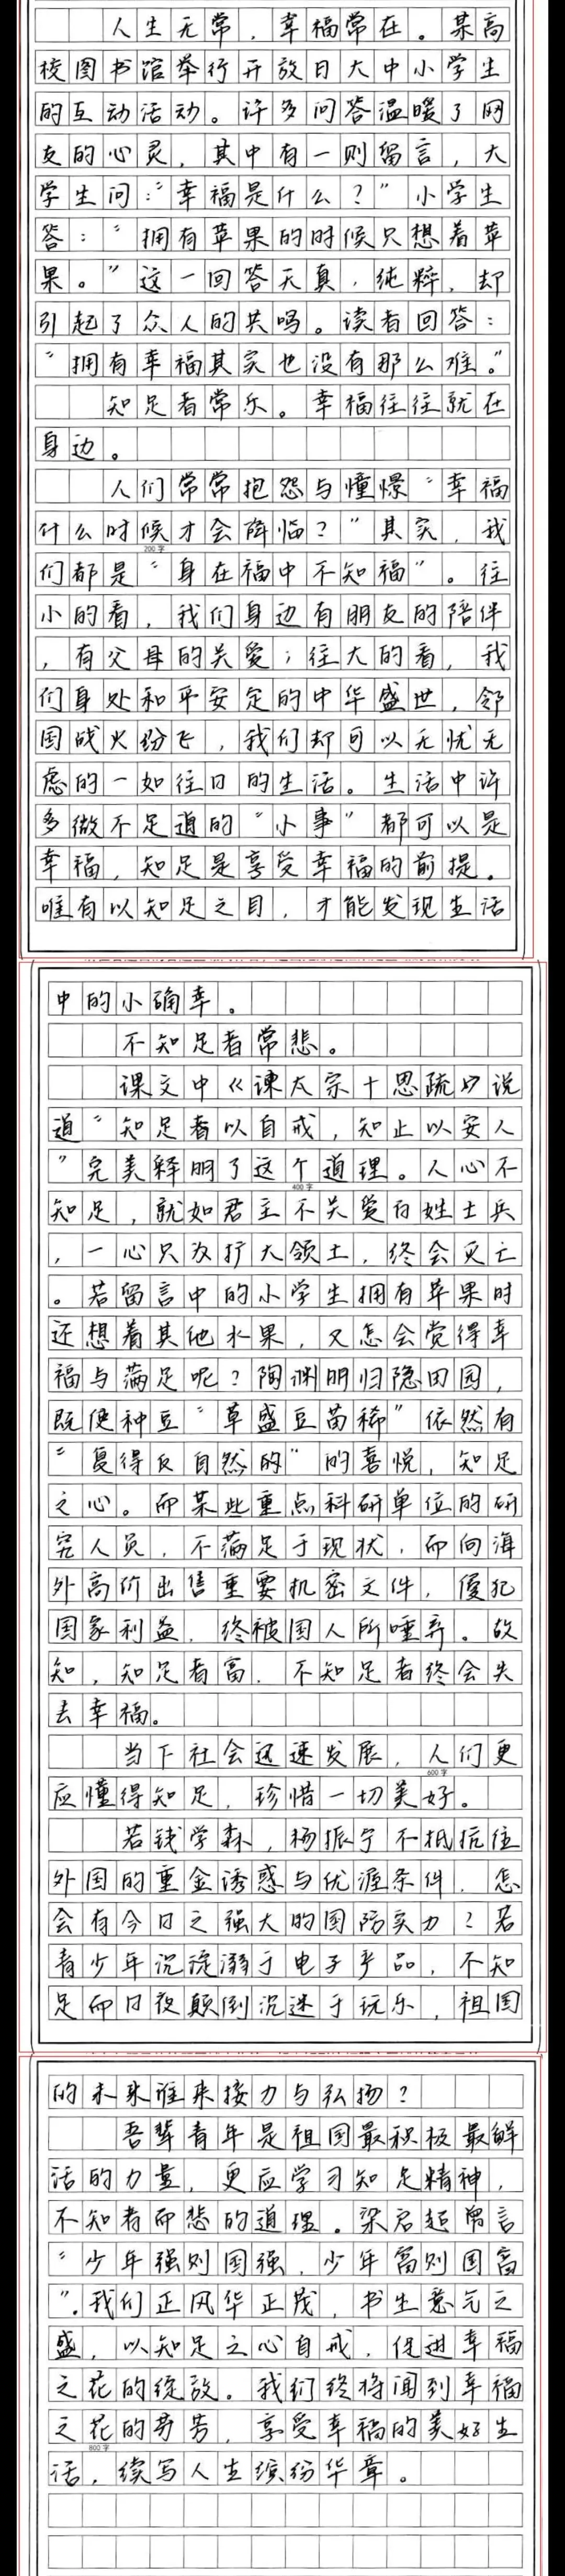 人生无常，幸福常在。某高
校图书馆举行开放日大中小学生
的互动活动。许多问答温暖了网
友的心灵，其中有一则留言，大
学生问：“幸福是什么？”小学生
答：“拥有苹果的时候只想着苹
果。”这一回答天真，纯粹，却
引起了众人的共鸣。读者回答：
“拥有幸福其实也没有那么难。”
知足者常乐。幸福往往就在
身边。
人们常常抱怨与憧憬“幸福
什么时候才会降临？”其实，我
200字
们都是“身在福中不知福”。往
小的看，我们身边有朋友的陪伴
，有父母的关爱；往大的看，我
们身处和平安定的中华盛世，邻
国战火纷飞，我们却可以无忧无
虑的一如往日的生活。生活中许
多微不足道的“小事”都可以是
幸福，知足是享受幸福的前提。
唯有以知足之目，才能发现生活
中的小确幸。
不知足者常悲。
课文中《谏太宗十思疏》说
道“知足者以自戒，知止以安人
”完美释明了这个道理。人心不
400字
知足，就如君主不关爱百姓士兵
，一心只为扩大领土，终会灭亡
。若留言中的小学生拥有苹果时
还想着其他水果，又怎会觉得幸
福与满足呢？陶渊明归隐田园，
既使种豆“草盛豆苗稀”依然有
“复得反自然的”的喜悦，知足
之心。而某些重点科研单位的研
究人员，不满足于现状，而向海
外高价出售重要机密文件，侵犯
国家利益，终被国人所唾弃。故
知，知足者富，不知足者终会失
去幸福。
当下社会迅速发展，人们更
600字
应懂得知足，珍惜一切美好。
若钱学森，杨振宁不抵抗住
外国的重金诱惑与优渥条件，怎
会有今日之强大的国防实力？若
青少年沉淀溺于电子产品，不知
足而日夜颠倒沉迷于玩乐，祖国
的未来谁来接力与弘扬？
吾辈青年是祖国最积极最鲜
活的力量，更应学习知足精神，
不知者而悲的道理。梁启超留言
“少年强则国强，少年富则国富
”。我们正风华正茂，书生意气之
盛，以知足之心自戒，促进幸福
之花的绽放。我们终将闻到幸福
之花的芬芳，享受幸福的美好生
800字
活，续写人生缤纷华章。